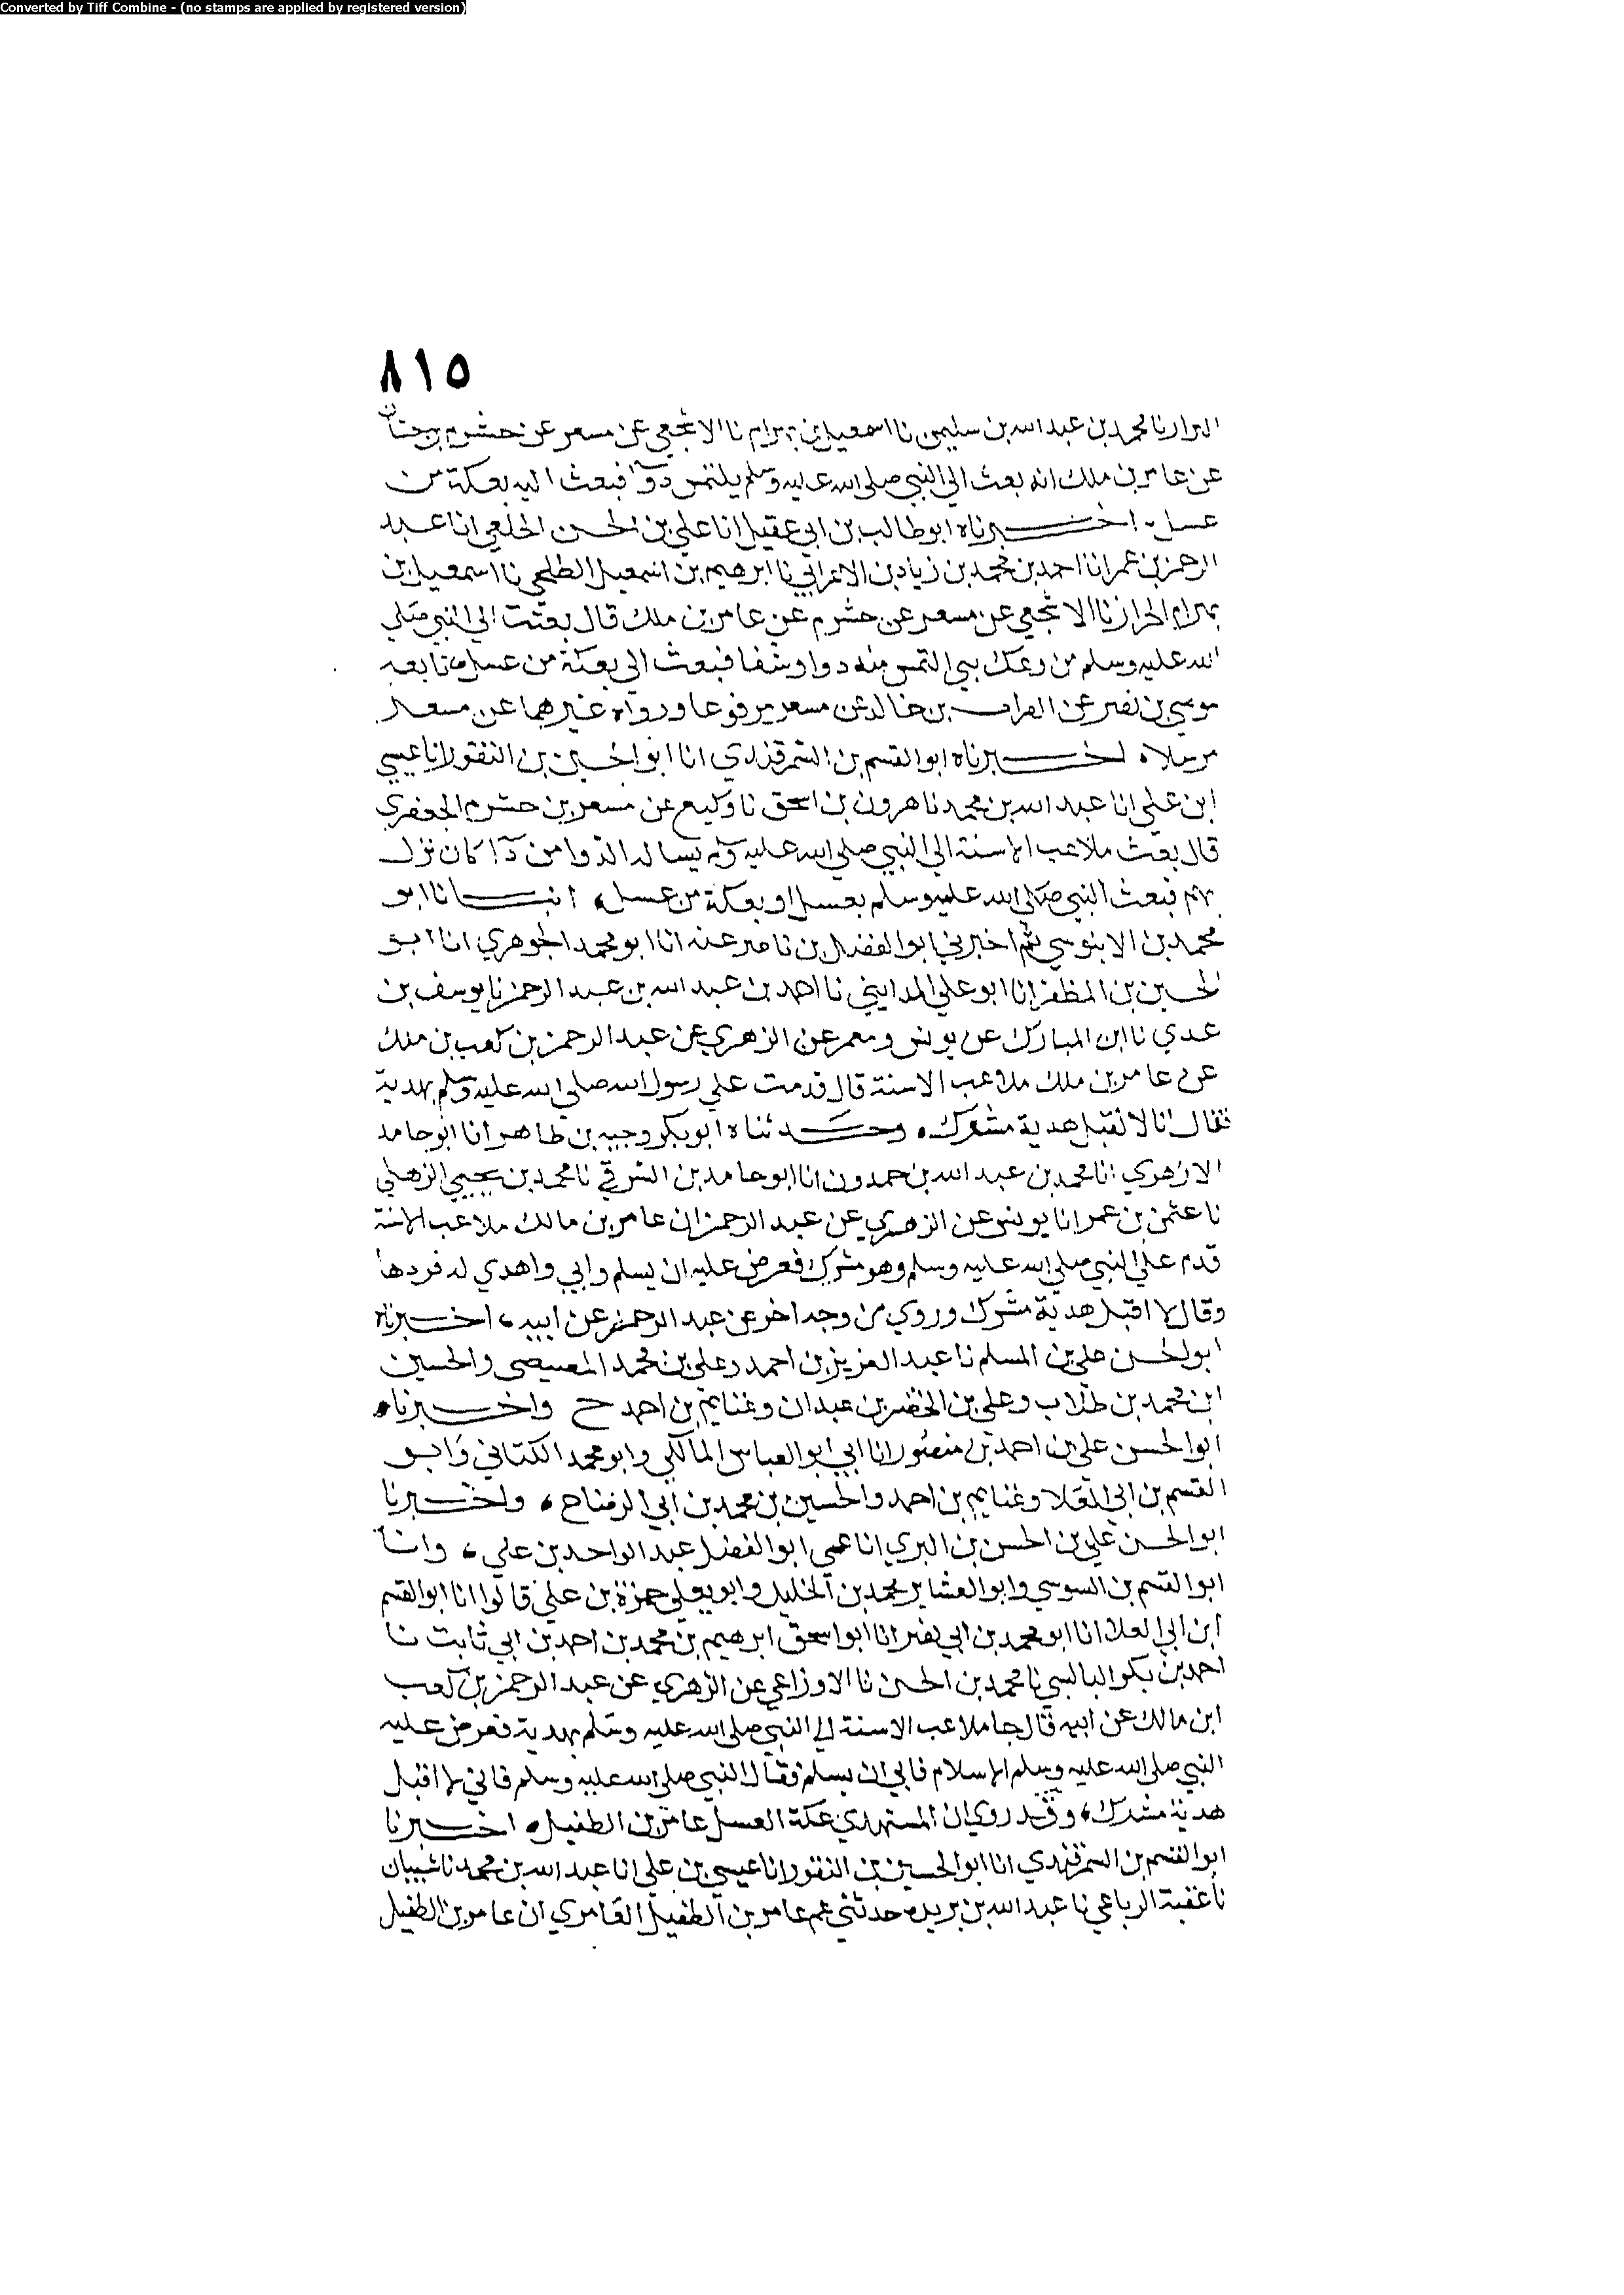 Converted by Tiff Combine - (no stamps are applied by registered version)
٨١٥
البزار نا محمد بن عبد الله بن سليمن نا اسمعيل بن بهرام نا الاشجعي عن مسعر عن خشرم بن حسان
عن عامر بن ملك انه بعث الي النبي صلى الله عليه وسلم يلتمس دوآ فبعث اليه بعكة من
عسل، اخبرناه ابو طالب بن ابي عقيل انا علي بن الحسن الخلعي انا عبد
الرحمن بن عمر انا احمد بن محمد بن زياد بن الاعرابي نا ابرهيم بن اسمعيل الطلحي نا اسمعيل بن
بهرام الخزاز نا الاشجعي عن مسعر عن خشرم عن عامر بن ملك قال بعثت الي النبي صلي
الله عليه وسلم من وعك بي التمس منه دوا وشفا فبعث الي بعكة من عسل، تابعه
موسي بن نصر عن الفرات بن خالد عن مسعر مرفوعا ورواه غيرهما عن مسعر
مرسلا، اخبرناه ابو القسم بن السمرقندي انا ابو الحسين بن النقور انا عيسي
ابن علي انا عبد الله بن محمد نا هرون بن اسحق نا وكيع عن مسعر بن خشرم الجعفري
قال بعث ملاعب الاسنة الي النبي صلي الله عليه وآله يساله الدوا من دآ كان نزل
بهم فبعث النبي صلى الله عليه وسلم بعسل او بعكة من عسل، انبانا ابو
محمد بن الابنوسي ثم اخبرني ابو الفضل بن ناصر عنه انا ابو محمد الجوهري انا ابو
الحسين بن المظفر انا ابو علي المدايني نا احمد بن عبد الله بن عبد الرحمن نا يوسف بن
عدي نا ابن المبارك عن يونس ومعمر عن الزهري عن عبد الرحمن بن كعب بن ملك
عن عامر بن ملك ملاعب الاسنة قال قدمت علي رسول الله صلى الله عليه وسلم بهدية
فقال انا لا نقبل هدية مشرك، وحدثناه ابو بكر وجيه بن طاهر انا ابو حامد
الازهري انا محمد بن عبد الله بن حمدون انا ابو حامد بن الشرقي نا محمد بن يحيي الذهلي
نا عثمن بن عمر انا يونس عن الزهري عن عبد الرحمن ان عامر بن مالك ملاعب الاسنة
قدم علي النبي صلي الله عليه وسلم وهو مشرك فعرض عليه ان يسلم وابي واهدي له فردها
وقال لا اقبل هدية مشرك وروي من وجه اخر عن عبد الرحمن عن ابيه، اخبرناه
ابو الحسن علي بن المسلم نا عبد العزيز بن احمد وعلي بن محمد المصيصي والحسين
ابن محمد بن طلاب وعلي بن الخضر بن عبدان وغنايم بن احمد ح واخبرناه
ابو الحسن علي بن احمد بن منصور انا ابي ابو العباس المالكي وابو محمد الكتاني وابو
القسم بن ابي العلا وغنايم بن احمد والحسين بن محمد بن ابي الرضاح، واخبرنا
ابو الحسن علي بن الحسن بن البري انا عمي ابو الفضل عبد الواحد بن علي، وانا
ابو القسم بن السوسي وابو العشاير محمد بن الخليل وابو يعلي حمزة بن علي قالوا انا ابو القسم
ابن ابي العلا انا ابو محمد بن ابي نصر انا ابو اسحق ابرهيم بن محمد بن احمد بن ابي ثابت نا
احمد بن بكر البالسي نا محمد بن الحسن نا الاوزاعي عن الزهري عن عبد الرحمن بن كعب
ابن مالك عن ابيه قال جا ملاعب الاسنة الي النبي صلى الله عليه وسلم بهدية فعرض عليه
النبي صلى الله عليه وسلم الاسلام فابي ان يسلم فقال النبي صلى الله عليه وسلم فاني لا اقبل
هدية مشرك، وقد روي ان المستهدي عكة العسل عامر بن الطفيل، اخبرنا
ابو القسم بن السمرقندي انا ابو الحسين بن النقور انا عيسي بن علي انا عبد الله بن محمد نا شيبان
نا عقبة الرباعي نا عبد الله بن بريده حدثني عم عامر بن الطفيل العامري ان عامر بن الطفيل